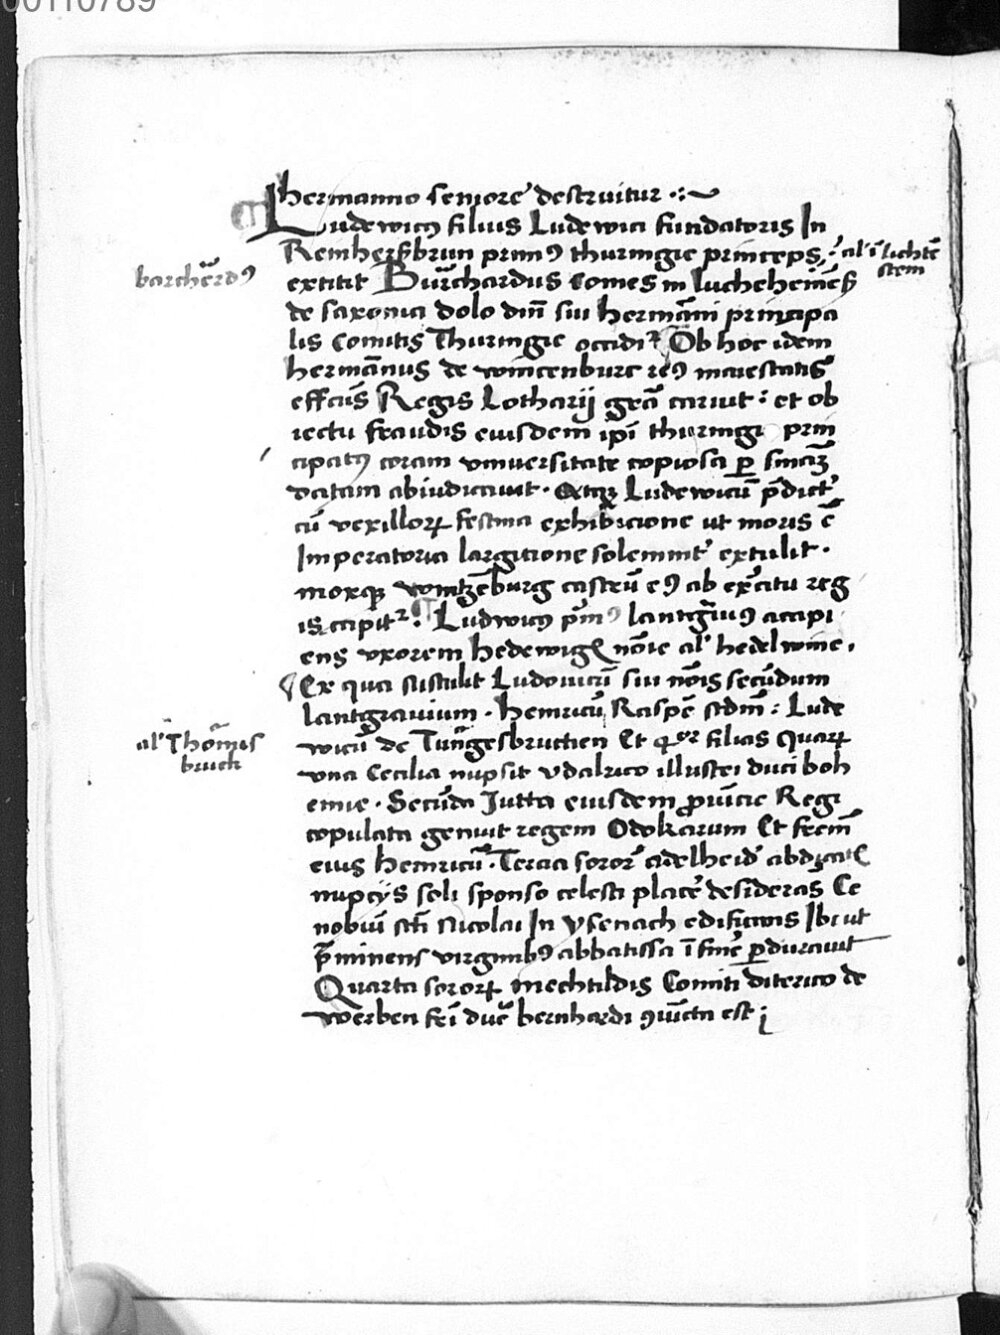 00110789
hermanno seniore destruitur
Ludewicꝰ filius Ludewici fundatoris In
Reinhersbrun primꝰ thuringie princeps
al' ī lichtē
stem
barchērdꝰ
extitit Burchardus Comes in luchēheim
de saxonia dolo dnī sui hermāni principa
lis Comitis Thuringie occidit Ob hoc idem
hermānus de wincenburc reꝰ maiestatis
effcūs Regis Lotharij grā cariut : et ob
iectu fraudis eiusdem ipī thuringi prin
cipatꝰ coram vniuersitate copiosa ꝑ
datam abiudicauit . Ludewicū p̄dict'
cū vexillorꝝ festiua exhibicione ut moris ē
Imperatoria largitione solemnit' extulit .
moxqꝫ wintzēburg castrū eꝰ ab exercitu reg
is capit' . Ludwicꝰ p̄mꝰ lantgrāuiꝰ accipi
ens vxorem hedewigꝭ nōīe al' hedelwine .
Ex qua sustulit Ludouicū sui nōīs secūdum
lantgrauium . heinricū Raspē : Lude
wicū de Tungesbruchen Et qͣꝛ filias Quarꝝ
al' Thōmis
bruch
vna Cecilia nupsit vdalrico illustri duci boh
emie . Secūda Jutta eiusdem ꝓuīcie Regi
copulata genuit regem Odokarum Et frēm
eius heinricū . Tercia soror adelheid' abdicatꝭ
nupcijs soli sponso celesti placē desiderās Ce
nobiū sctī Nicolai In ysenach edificans Ibi ut
p̄minens virginibꝰ abbatissa ī finē ꝑdurauit
Quarta sororꝝ mechtildis Comiti diterico de
werben frī ducꝭ bernhardi ꝯiūcta est